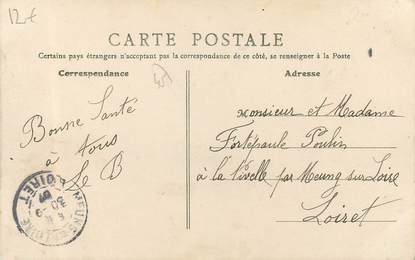 12€
CARTE POSTALE
Certains pays étrangers n'acceptant pas la correspondance de ce côté, se renseigner à la Poste
Correspondance
45
Adresse
Bonne Santé
à
tous
Le B
Monsieur et Madame
Fortépaule Poulin
à la Nivelle par Meung sur Loire
Loiret
MEUNG-S-LOIRE
LOIRET
30
07